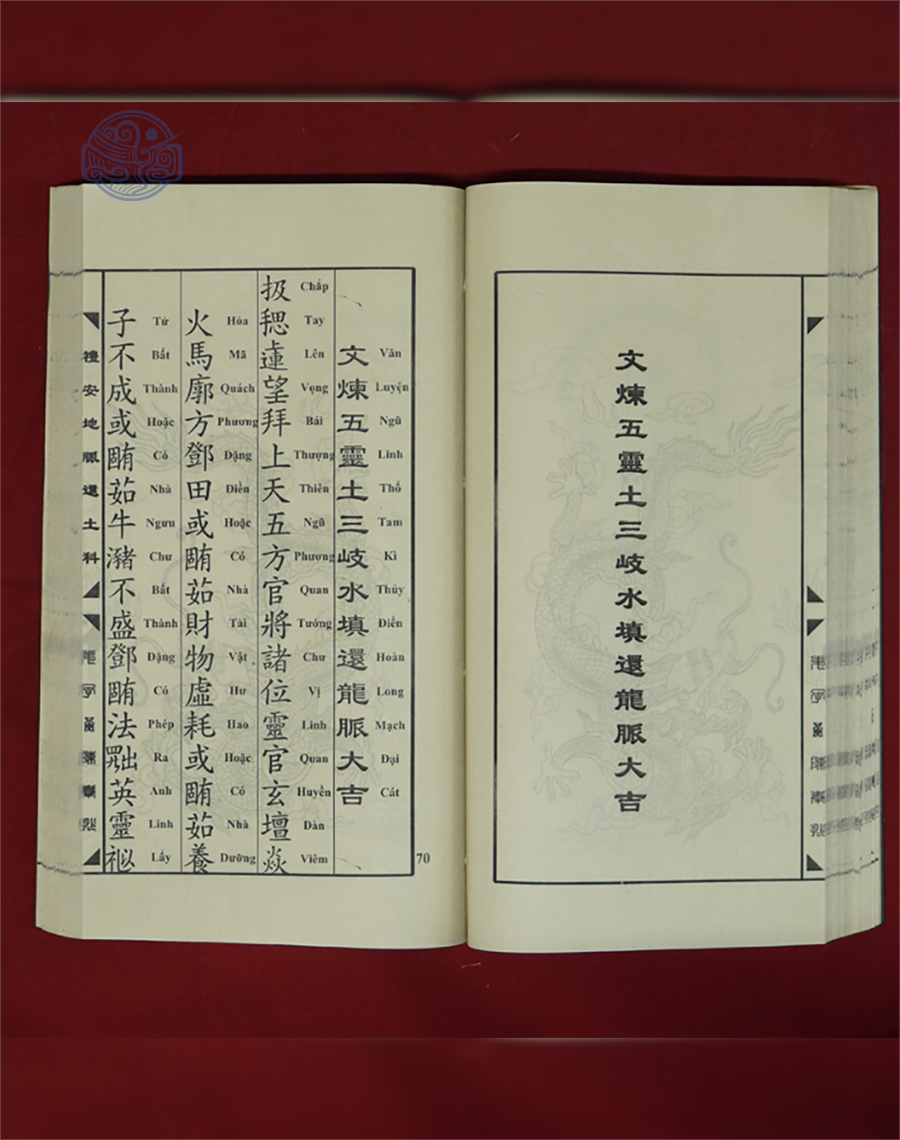 文煉五靈土三岐水填還龍脈大吉
文煉五靈土三岐水填還龍脈大吉
Văn Luyện Ngũ Linh Thổ Tam Kì Thủy Điền Hoàn Long Mạch Đại Cát
扱望拜上天五方官將諸位靈官玄壇焱
Chắp Tay Lên Vọng Bái Thượng Thiên Ngũ Phương Quan Tướng Chư Vị Linh Quan Huyền Đàn Viêm
火馬廓方鄧田或茹財物虛耗或茹養
Hỏa Mã Quách Phương Đặng Điền Hoặc Có Nhà Tài Vật Hư Hao Hoặc Có Nhà Dưỡng
子不成或茹牛瀦不盛鄧法英靈
Tử Bất Thành Hoặc Có Nhà Ngưu Chư Bất Thành Đặng Có Phép Ra Anh Linh Lấy
禮安地脈還土科
70